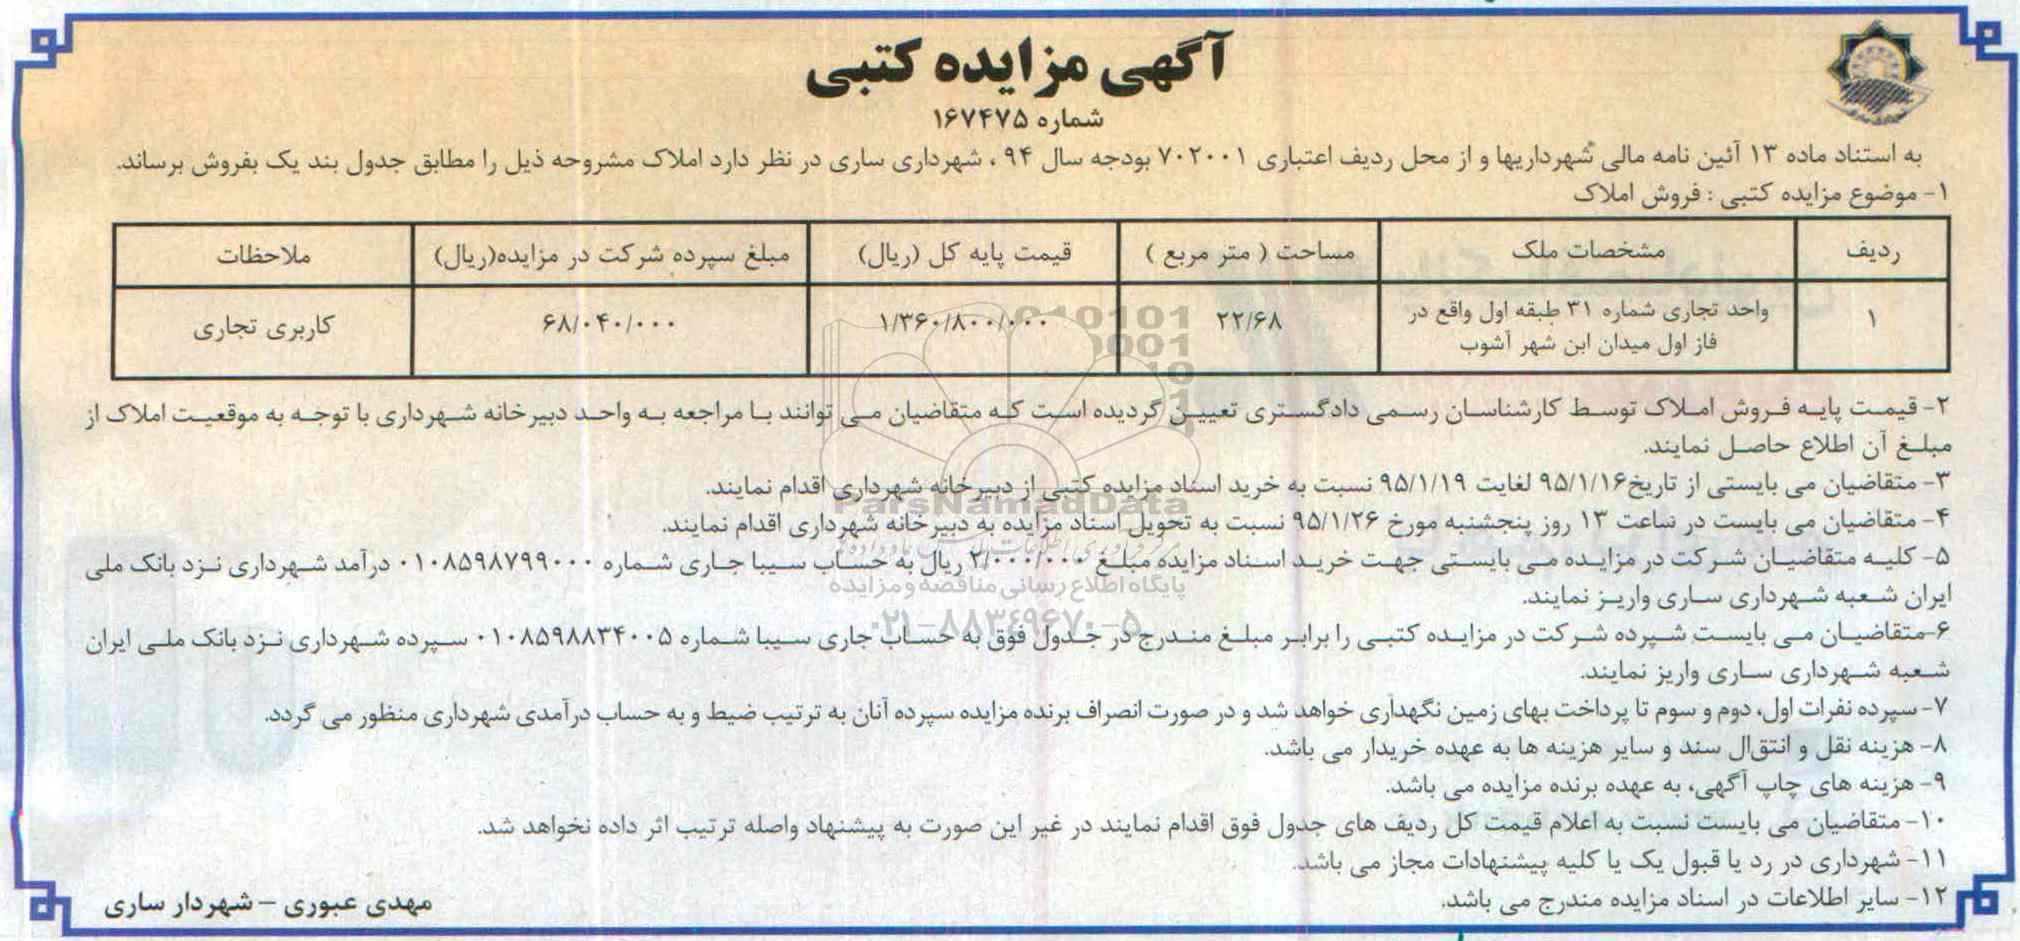 آگهی مزایده کتبی
شماره ۱۶۷۴۷۵
به استناد ماده ۱۳ آئین نامه مالی شهرداریها و از محل ردیف اعتباری ۷۰۲۰۰۱ بودجه سال ۹۴ ، شهرداری ساری در نظر دارد املاک مشروحه ذیل را مطابق جدول بند یک بفروش برساند.
۱- موضوع مزایده کتبی : فروش املاک
ردیف مشخصات ملک مساحت ( متر مربع ) قیمت پایه کل (ریال) مبلغ سپرده شرکت در مزایده(ریال) ملاحظات
۱ واحد تجاری شماره ۳۱ طبقه اول واقع در ۲۲/۶۸ ۱/۳۶۰/۸۰۰/۰۰۰ ۶۸/۰۴۰/۰۰۰ کاربری تجاری
فاز اول میدان ابن شهر آشوب
۲- قیمت پایه فروش املاک توسط کارشناسان رسمی دادگستری تعیین گردیده است که متقاضیان می توانند با مراجعه به واحد دبیرخانه شهرداری با توجه به موقعیت املاک از
مبلغ آن اطلاع حاصل نمایند.
۳- متقاضیان می بایستی از تاریخ۹۵/۱/۱۶ لغایت ۹۵/۱/۱۹ نسبت به خرید اسناد مزایده کتبی از دبیرخانه شهرداری اقدام نمایند.
ParsNamadData
۴- متقاضیان می بایست در ساعت ۱۳ روز پنجشنبه مورخ ۹۵/۱/۲۶ نسبت به تحویل اسناد مزایده به دبیرخانه شهرداری اقدام نمایند.
۵- کلیه متقاضیان شرکت در مزایده می بایستی جهت خرید اسناد مزایده مبلغ ۲/۰۰۰/۰۰۰ ریال به حساب سیبا جاری شماره ۰۱۰۸۵۹۸۷۹۹۰۰۰ درآمد شهرداری نزد بانک ملی
پایگاه اطلاع رسانی مناقصه و مزایده
ایران شعبه شهرداری ساری واریز نمایند.
۰۲۱-۸۸۳۴۹۶۷۰-۵
۶-متقاضیان می بایست سپرده شرکت در مزایده کتبی را برابر مبلغ مندرج در جدول فوق به حساب جاری سیبا شماره ۰۱۰۸۵۹۸۸۳۴۰۰۵ سپرده شهرداری نزد بانک ملی ایران
شعبه شهرداری ساری واریز نمایند.
۷- سپرده نفرات اول، دوم و سوم تا پرداخت بهای زمین نگهداری خواهد شد و در صورت انصراف برنده مزایده سپرده آنان به ترتیب ضبط و به حساب درآمدی شهرداری منظور می گردد.
۸- هزینه نقل و انتقال سند و سایر هزینه ها به عهده خریدار می باشد.
۹- هزینه های چاپ آگهی، به عهده برنده مزایده می باشد.
۱۰- متقاضیان می بایست نسبت به اعلام قیمت کل ردیف های جدول فوق اقدام نمایند در غیر این صورت به پیشنهاد واصله ترتیب اثر داده نخواهد شد.
۱۱- شهرداری در رد یا قبول یک یا کلیه پیشنهادات مجاز می باشد.
۱۲- سایر اطلاعات در اسناد مزایده مندرج می باشد.
مهدی عبوری – شهردار ساری